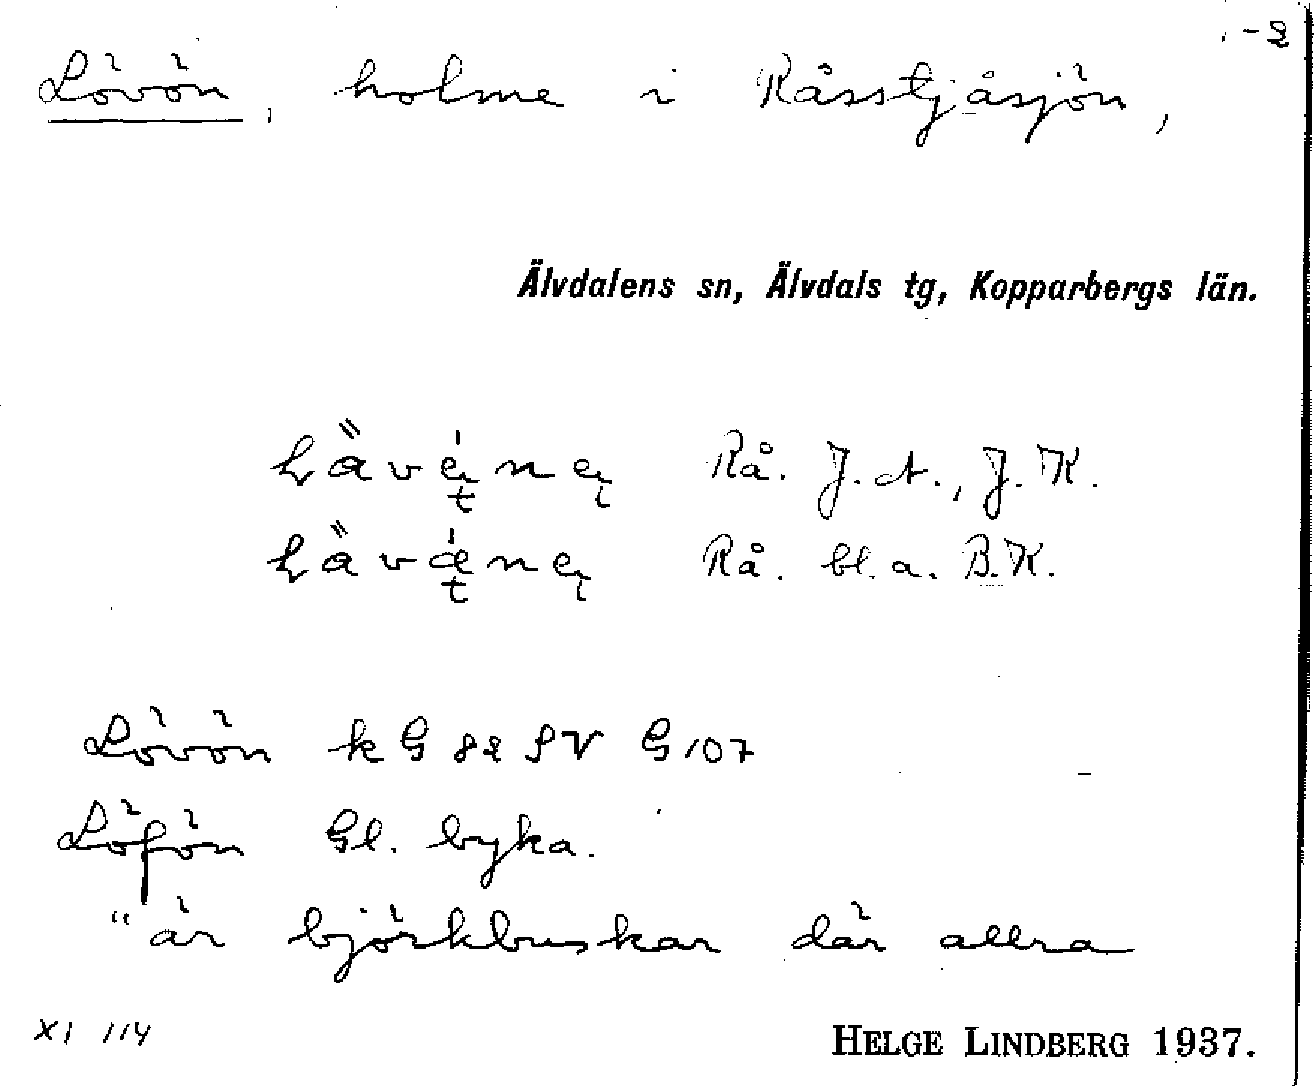 -2
Lövön, holme i Råsstjåsjön,
Älvdalens sn, Älvdals tg, Kopparbergs län.
Rå. J. A., J. K.
Rå. bl. a. B. K.
Lövön kG 82 SV G 107
Löfön Gl. byka.
"är björkbuskar där allra
XI 114
HELGE LINDBERG 1937.